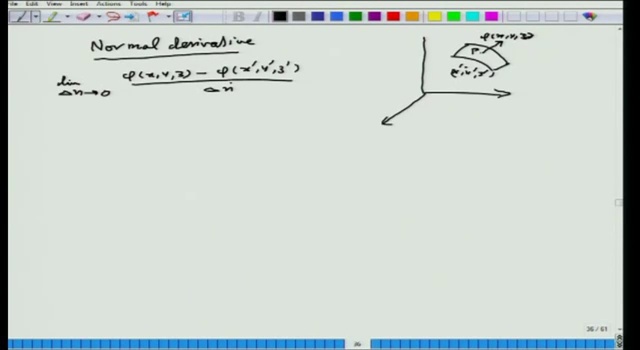 Edit View Insert Actions Tools Help
Normal derivative
lim Δn→0 φ(x,y,z) − φ(x′,y′,z′) / Δn
φ(x,y,z)
P
(x′,y′,z′)
36 / 61
36